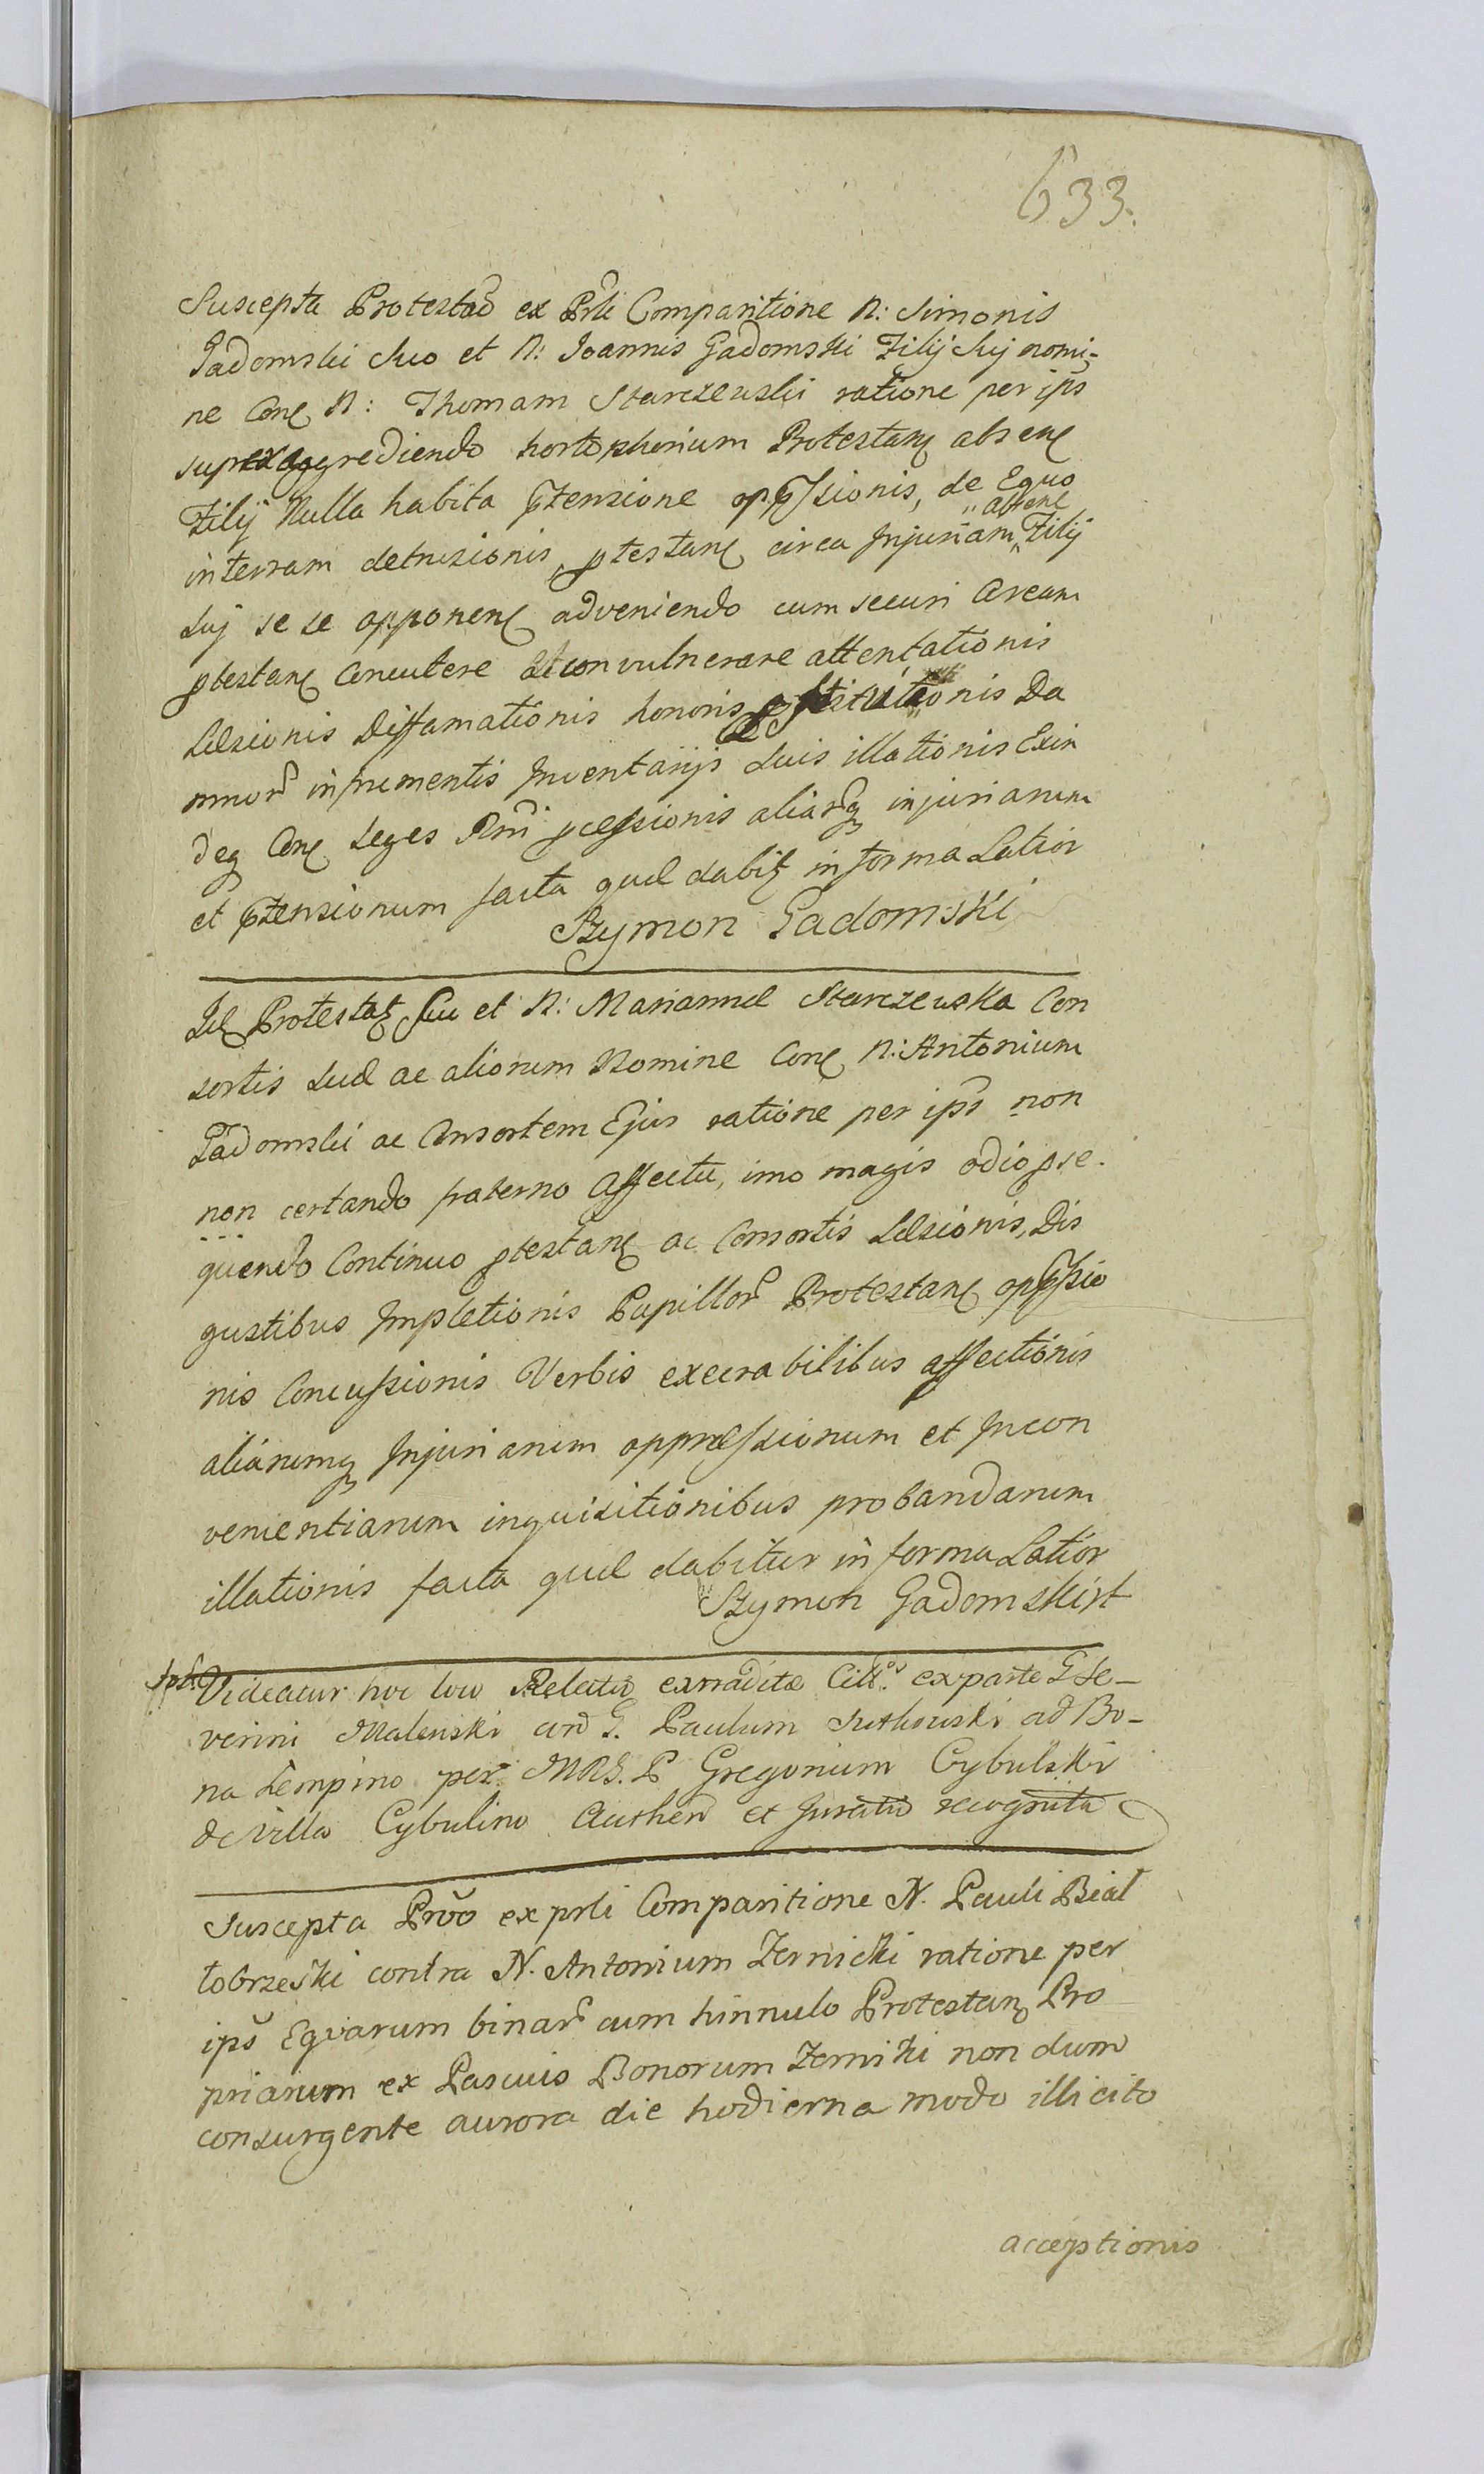 633.
Suscepta Protestao ex Prli Comparitione N: Simonis
Gadomski Suo et N: Joannis Gadomski Filij Suj nomi-
ne Con N: Thomam Starczewski ratione per ips
aggrediendo Protestan absen
Filij Nulla habita ptensione oppssionis, de Equo
absene
in terram detrusionis, ptestan circa Injuriam Filij
Suj se se opponen adveniendo cum securi Arcam
ptestan Concutere et convulnerare attentationis
Læsionis Diffamationis honoris Da
mnor in frumentis Inventarijs Suis illationis Exin
deq Con Leges Rni pcessionis aliarq injuriarum
et ptensionum facta quæ dabit in forma Latior
Szymon Gadomski
Id Protestat Suo et N: Mariannæ Starczewska Con
sortis Suæ ac aliorum Nomine Con N: Antonium
Gadomski ac Consortem Ejus ratione per ips non
non certando fraterno Affectu, imo magis odio pse-
quendo Continuo ptestan ac Consortis Læsionis, Dis
gustibus Impletionis Pupillor Protestan oppssio
nis Concussionis Verbis execrabilibus affectionis
aliarumq Injuriarum oppressionum et Incon
venientiarum inquisitionibus probandarum
illationis facta quæ dabitur in forma Latior
Szymon Gadomski
Videatur hoc loco Relatio extraditæ Citt. ex parte G Se-
verini Malewski ad G. Paulum Sutkowski ad Bo-
na Lempino per MRS. P Gregorium Cybulski
de Villa Cybulino Authen et Juratio recognita
Suscepta Prõo ex prli Comparitione N. Pauli Biał
łobrzeski contra N. Antonium Żernicki ratione per
ips Equarum binar cum hinnulo Protestan Pro
priarum ex Pascuis Bonorum Żerniki non dum
consurgente aurora die hodierna modo illicito
acceptionis